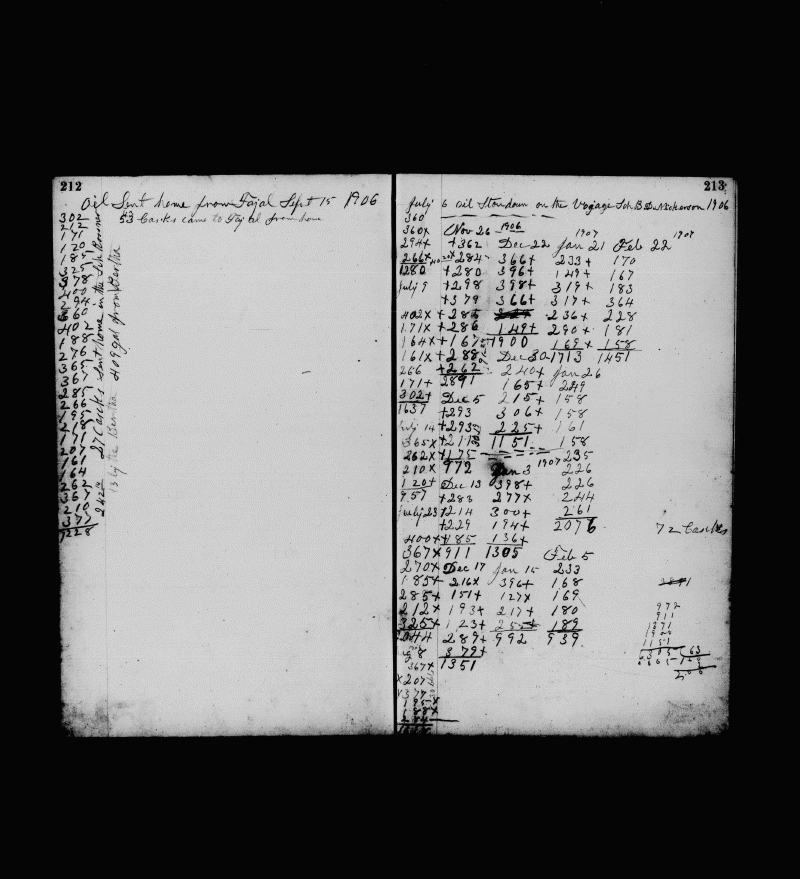 212
Oil Sent home from Fayal Sept 15 1906
53 Casks came to Fayal from home
302
212
171
120
187
325
378
400
294
360
402
188
276
365
367
285
266
195
287
171
207
161
164
262
367
210
377
7228
27 Casks Sent home in the Sch
13 by the Bertha 409 gal from Bertha
213
July 6 oil Stowdown on the Voyage Sch B D Nickerson 1906
360
360x
294x
266x
1280
July 9
402x
171x
164x
161x
266
171+
302+
1637
July 14
365x
262x
210x
120+
957
July 23
400x
367x
270x
185+
285+
212x
325x
2044
367x
x207
x377
195x
188x
Nov 26 1906
+362
+284
+280
+298
+379
+285
+286
+167
+288
+262
2891
Dec 5
+293
+293
+211
+175
972
Dec 13
+283
+214
+229
+185
911
Dec 17
216x
151+
193+
123+
289+
379+
1351
Dec 22
366+
396+
398+
366+
149+
1900
Dec 30
240x
165+
215+
306+
225+
1151
Jan 3 1907
398+
277x
300+
194+
136+
1305
Jan 15
396+
127x
217+
255+
992
1907
Jan 21
233+
149+
319+
317+
236+
290+
169+
1713
Jan 26
249
158
158
161
158
235
226
226
244
261
2076
Feb 5
233
168
169
180
189
939
1907
Feb 22
170
167
183
364
228
181
158
1451
72 Casks
2891
972
911
1371
1900
1151